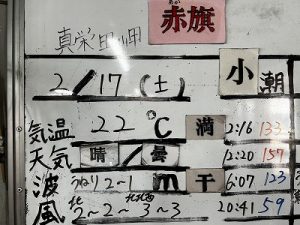 あか
赤旗
真栄田岬
2/17(土) 小潮
気温 22℃ 満 2:16 133
天気 晴/曇 12:20 157
波 うねり2~1m 干 6:07 123
風 北2~2~北北西3~3 20:41 59